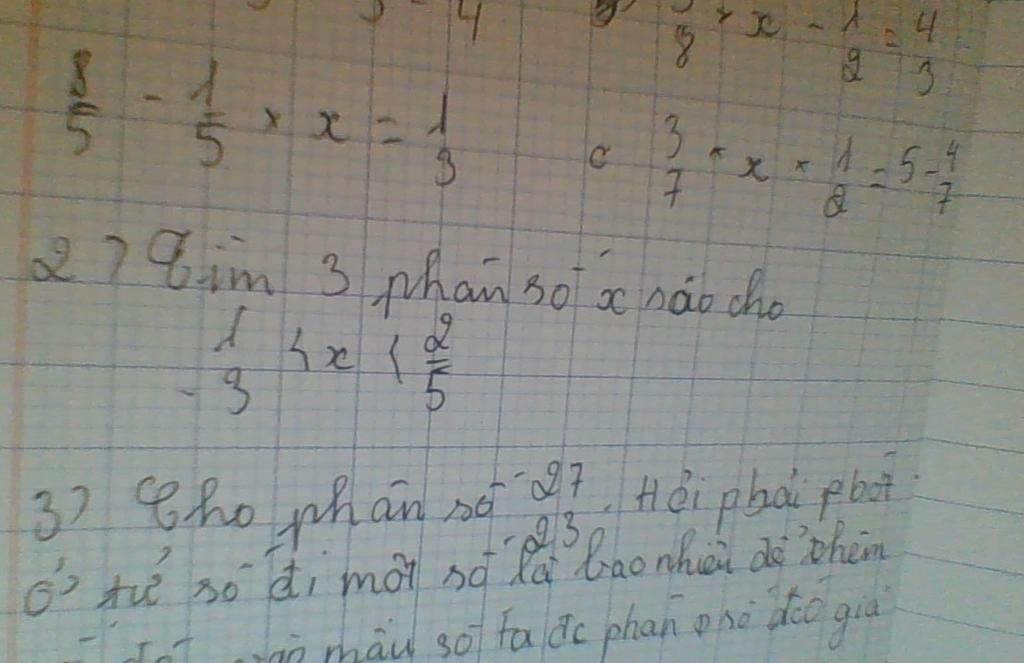 3/8 × x - 1/2 = 4/3
8/5 - 1/5 × x = 1/3
c 3/7 × x × 1/2 = 5 - 4/7
2) Tìm 3 phân số x sao cho
1/3 < x < 2/5
3) Cho phân số 27/23. Hỏi phải bớt
ở tử số đi một số là bao nhiêu để thêm
mẫu số ta đc phân số có giá